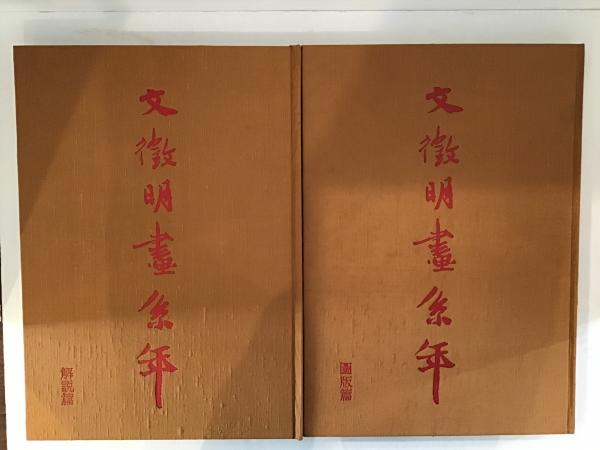 文徵明畫系年
解説篇
文徵明畫系年
圖版篇